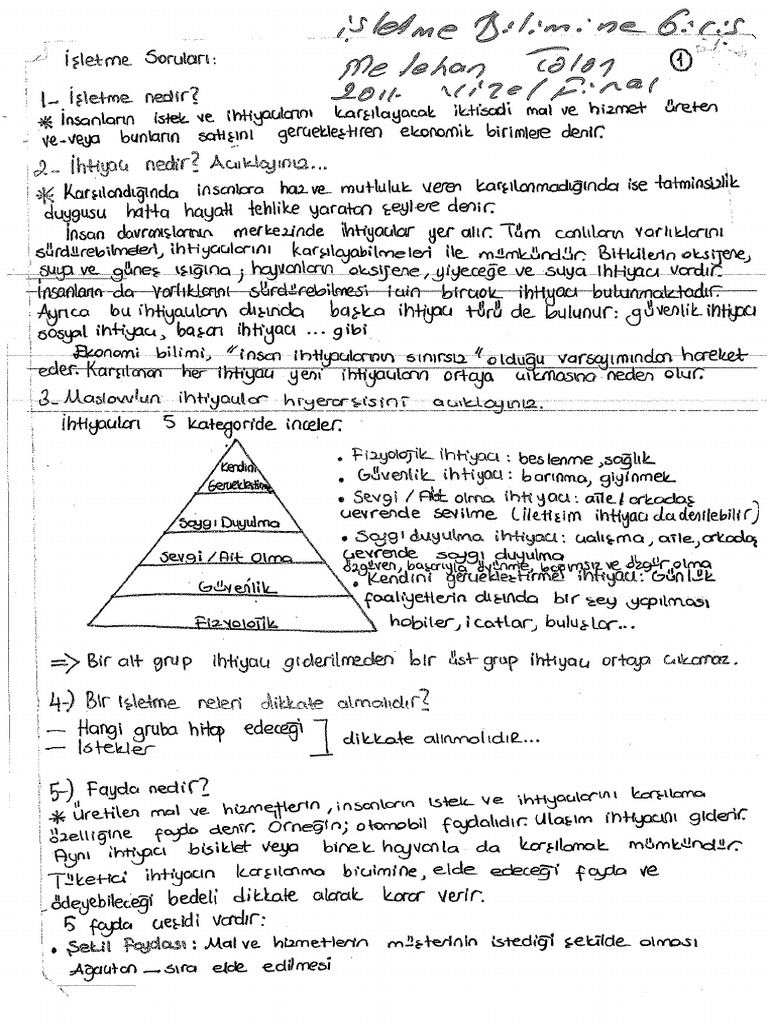 işletme Bilimine Giriş
İşletme Soruları:
Metehan Tolon
1
2011 Vize Final
1- İşletme nedir?
* İnsanların istek ve ihtiyaçlarını karşılayacak iktisadi mal ve hizmet üreten
ve-veya bunların satışını gerçekleştiren ekonomik birimlere denir.
2- İhtiyaç nedir? Açıklayınız...
* Karşılandığında insanlara haz ve mutluluk veren karşılanmadığında ise tatminsizlik
duygusu hatta hayati tehlike yaratan şeylere denir.
İnsan davranışlarının merkezinde ihtiyaçlar yer alır. Tüm canlıların varlıklarını
sürdürebilmeleri, ihtiyaçlarını karşılayabilmeleri ile mümkündür. Bitkilerin oksijene,
suya ve güneş ışığına; hayvanların oksijene, yiyeceğe ve suya ihtiyacı vardır.
İnsanların da varlıklarını sürdürebilmesi için birçok ihtiyacı bulunmaktadır.
Ayrıca bu ihtiyaçların dışında başka ihtiyaç türü de bulunur: güvenlik ihtiyacı
sosyal ihtiyaç, başarı ihtiyacı ... gibi
Ekonomi bilimi, "insan ihtiyaçlarının sınırsız" olduğu varsayımından hareket
eder. Karşılanan her ihtiyaç yeni ihtiyaçların ortaya çıkmasına neden olur.
3- Maslow'un ihtiyaçlar hiyerarşisini açıklayınız.
İhtiyaçları 5 kategoride inceler.
Kendini
Gerçekleştirme
Saygı Duyulma
Sevgi / Ait Olma
Güvenlik
Fizyolojik
• Fizyolojik ihtiyaç: beslenme, sağlık
• Güvenlik ihtiyacı: barınma, giyinmek
• Sevgi / Ait olma ihtiyacı: aile / arkadaş
çevrende sevilme (iletişim ihtiyacı da denilebilir)
• Saygı duyulma ihtiyacı: çalışma, aile, arkadaş
çevrende saygı duyulma
özgüven, başarıyla övünme, bağımsız ve özgür olma
• Kendini gerçekleştirme ihtiyacı: Günlük
faaliyetlerin dışında bir şey yapılması
hobiler, icatlar, buluşlar...
=> Bir alt grup ihtiyacı giderilmeden bir üst grup ihtiyacı ortaya çıkamaz.
4-) Bir işletme neleri dikkate almalıdır?
— Hangi gruba hitap edeceği
— İstekler
dikkate alınmalıdır...
5-) Fayda nedir?
* Üretilen mal ve hizmetlerin, insanların istek ve ihtiyaçlarını karşılama
özelliğine fayda denir. Örneğin; otomobil faydalıdır. Ulaşım ihtiyacını giderir.
Aynı ihtiyacı bisiklet veya binek hayvanla da karşılamak mümkündür.
Tüketici ihtiyacın karşılanma biçimine, elde edeceği fayda ve
ödeyebileceği bedeli dikkate alarak karar verir.
5 fayda çeşidi vardır:
• Şekil Faydası: Mal ve hizmetlerin müşterinin istediği şekilde olması
Ağaçtan — sıra elde edilmesi